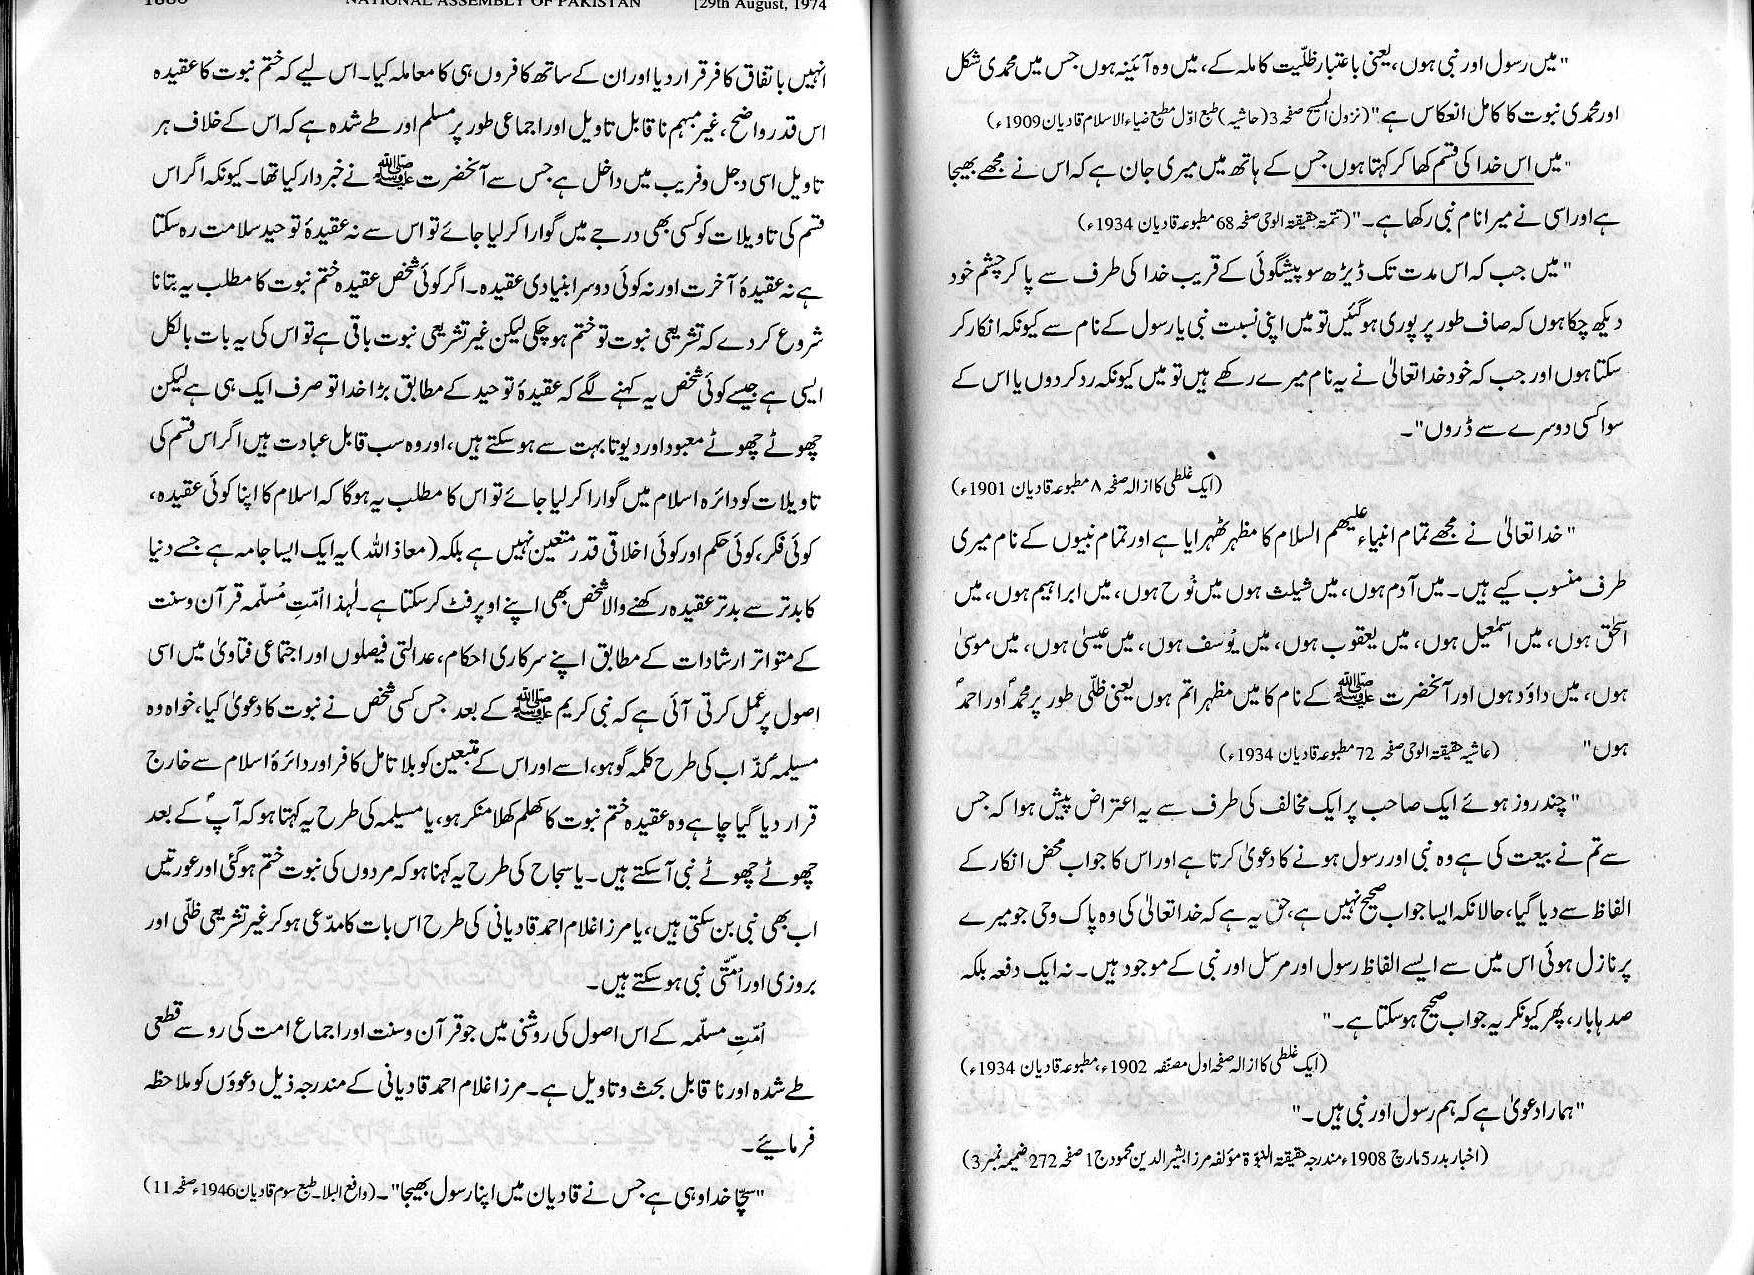 NATIONAL ASSEMBLY OF PAKISTAN [29th August, 1974
انہیں باتفاق کافر قرار دیا اور ان کے ساتھ کافروں ہی کا معاملہ کیا۔ اس لیے کہ ختم نبوت کا عقیدہ
اس قدر واضح، غیر مبہم ناقابل تاویل اور اجماعی طور پر مسلم اور طے شدہ ہے کہ اس کے خلاف ہر
تاویل اسی دجل و فریب میں داخل ہے جس سے آنحضرت ﷺ نے خبردار کیا تھا۔ کیونکہ اگر اس
قسم کی تاویلات کو کسی بھی درجے میں گوارا کر لیا جائے تو اس سے نہ عقیدۂ توحید سلامت رہ سکتا
ہے نہ عقیدۂ آخرت اور نہ کوئی دوسرا بنیادی عقیدہ۔ اگر کوئی شخص عقیدہ ختم نبوت کا مطلب یہ بتانا
شروع کر دے کہ تشریعی نبوت تو ختم ہو چکی لیکن غیر تشریعی نبوت باقی ہے تو اس کی یہ بات بالکل
ایسی ہے جیسے کوئی شخص یہ کہنے لگے کہ عقیدۂ توحید کے مطابق بڑا خدا تو صرف ایک ہی ہے لیکن
چھوٹے چھوٹے معبود اور دیوتا بہت سے ہو سکتے ہیں، اور وہ سب قابل عبادت ہیں اگر اس قسم کی
تاویلات کو دائرہ اسلام میں گوارا کر لیا جائے تو اس کا مطلب یہ ہوگا کہ اسلام کا اپنا کوئی عقیدہ،
کوئی فکر، کوئی حکم اور کوئی اخلاقی قدر متعین نہیں ہے بلکہ (معاذ اللہ) یہ ایک ایسا جامہ ہے جسے دنیا
کا بدتر سے بدتر عقیدہ رکھنے والا شخص بھی اپنے اوپر فٹ کر سکتا ہے۔ لہٰذا اُمّتِ مُسلّمہ قرآن و سنت
کے متواتر ارشادات کے مطابق اپنے سرکاری احکام، عدالتی فیصلوں اور اجتماعی فتاویٰ میں اسی
اصول پر عمل کرتی آئی ہے کہ نبی کریم ﷺ کے بعد جس کسی شخص نے نبوت کا دعویٰ کیا، خواہ وہ
مسیلمہ کذّاب کی طرح کلمہ گو ہو، اسے اور اس کے متبعین کو بلا تامل کافر اور دائرۂ اسلام سے خارج
قرار دیا گیا چاہے وہ عقیدہ ختم نبوت کا کھلم کھلا منکر ہو، یا مسیلمہ کی طرح یہ کہتا ہو کہ آپؐ کے بعد
چھوٹے چھوٹے نبی آ سکتے ہیں۔ یا سجاح کی طرح یہ کہنا ہو کہ مردوں کی نبوت ختم ہو گئی اور عورتیں
اب بھی نبی بن سکتی ہیں، یا مرزا غلام احمد قادیانی کی طرح اس بات کا مدّعی ہو کر غیر تشریعی ظلّی اور
بروزی اور اُمتّی نبی ہو سکتے ہیں۔
اُمّتِ مسلّمہ کے اس اصول کی روشنی میں جو قرآن و سنت اور اجماع امت کی رو سے قطعی
طے شدہ اور ناقابل بحث و تاویل ہے۔ مرزا غلام احمد قادیانی کے مندرجہ ذیل دعوؤں کو ملاحظہ
فرمائیے۔
"سچّا خدا وہی ہے جس نے قادیان میں اپنا رسول بھیجا"۔ (دافع البلا۔ طبع سوم قادیان 1946ء صفحہ 11)
"میں رسول اور نبی ہوں، یعنی باعتبار ظلّیت کاملہ کے، میں وہ آئینہ ہوں جس میں محمدی شکل
اور محمدی نبوت کا کامل انعکاس ہے" (نزول المسیح صفحہ 3 (حاشیہ) طبع اوّل مطبع ضیاء الاسلام قادیان 1909ء)
"میں اس خدا کی قسم کھا کر کہتا ہوں جس کے ہاتھ میں میری جان ہے کہ اس نے مجھے بھیجا
ہے اور اسی نے میرا نام نبی رکھا ہے۔" (تتمۃ حقیقۃ الوحی صفحہ 68 مطبوعہ قادیان 1934ء)
"میں جب کہ اس مدت تک ڈیڑھ سو پیشگوئی کے قریب خدا کی طرف سے پا کر چشم خود
دیکھ چکا ہوں کہ صاف طور پر پوری ہو گئیں تو میں اپنی نسبت نبی یا رسول کے نام سے کیونکہ انکار کر
سکتا ہوں اور جب کہ خود خدا تعالیٰ نے یہ نام میرے رکھے ہیں تو میں کیونکہ رد کر دوں یا اس کے
سوا کسی دوسرے سے ڈروں"۔
(ایک غلطی کا ازالہ صفحہ ۸ مطبوعہ قادیان 1901ء)
"خدا تعالیٰ نے مجھے تمام انبیاء علیھم السلام کا مظہر ٹھہرایا ہے اور تمام نبیوں کے نام میری
طرف منسوب کیے ہیں۔ میں آدم ہوں، میں شیلث ہوں میں نُوح ہوں، میں ابراہیم ہوں، میں
اسحٰق ہوں، میں اسمٰعیل ہوں، میں یعقوب ہوں، میں یُوسف ہوں، میں عیسیٰ ہوں، میں موسیٰ
ہوں، میں داؤد ہوں اور آنحضرت ﷺ کے نام کا میں مظہر اتم ہوں یعنی ظلّی طور پر محمدؐ اور احمدؐ
ہوں" (عاشیہ حقیقۃ الوحی صفحہ 72 مطبوعہ قادیان 1934ء)
"چند روز ہوئے ایک صاحب پر ایک مخالف کی طرف سے یہ اعتراض پیش ہوا کہ جس
سے تم نے بیعت کی ہے وہ نبی اور رسول ہونے کا دعویٰ کرتا ہے اور اس کا جواب محض انکار کے
الفاظ سے دیا گیا، حالانکہ ایسا جواب صحیح نہیں ہے، حق یہ ہے کہ خدا تعالیٰ کی وہ پاک وحی جو میرے
پر نازل ہوئی اس میں سے ایسے الفاظ رسول اور مرسل اور نبی کے موجود ہیں۔ نہ ایک دفعہ بلکہ
صد ہا بار، پھر کیونکر یہ جواب صحیح ہو سکتا ہے۔"
(ایک غلطی کا ازالہ صفحہ اول مصنفہ 1902ء، مطبوعہ قادیان 1934ء)
"ہمارا دعویٰ ہے کہ ہم رسول اور نبی ہیں۔"
(اخبار بدر 5 مارچ 1908ء مندرجہ حقیقۃ النبوّۃ مؤلفہ مرزا بشیر الدین محمود ج 1 صفحہ 272 ضمیمہ نمبر 3)